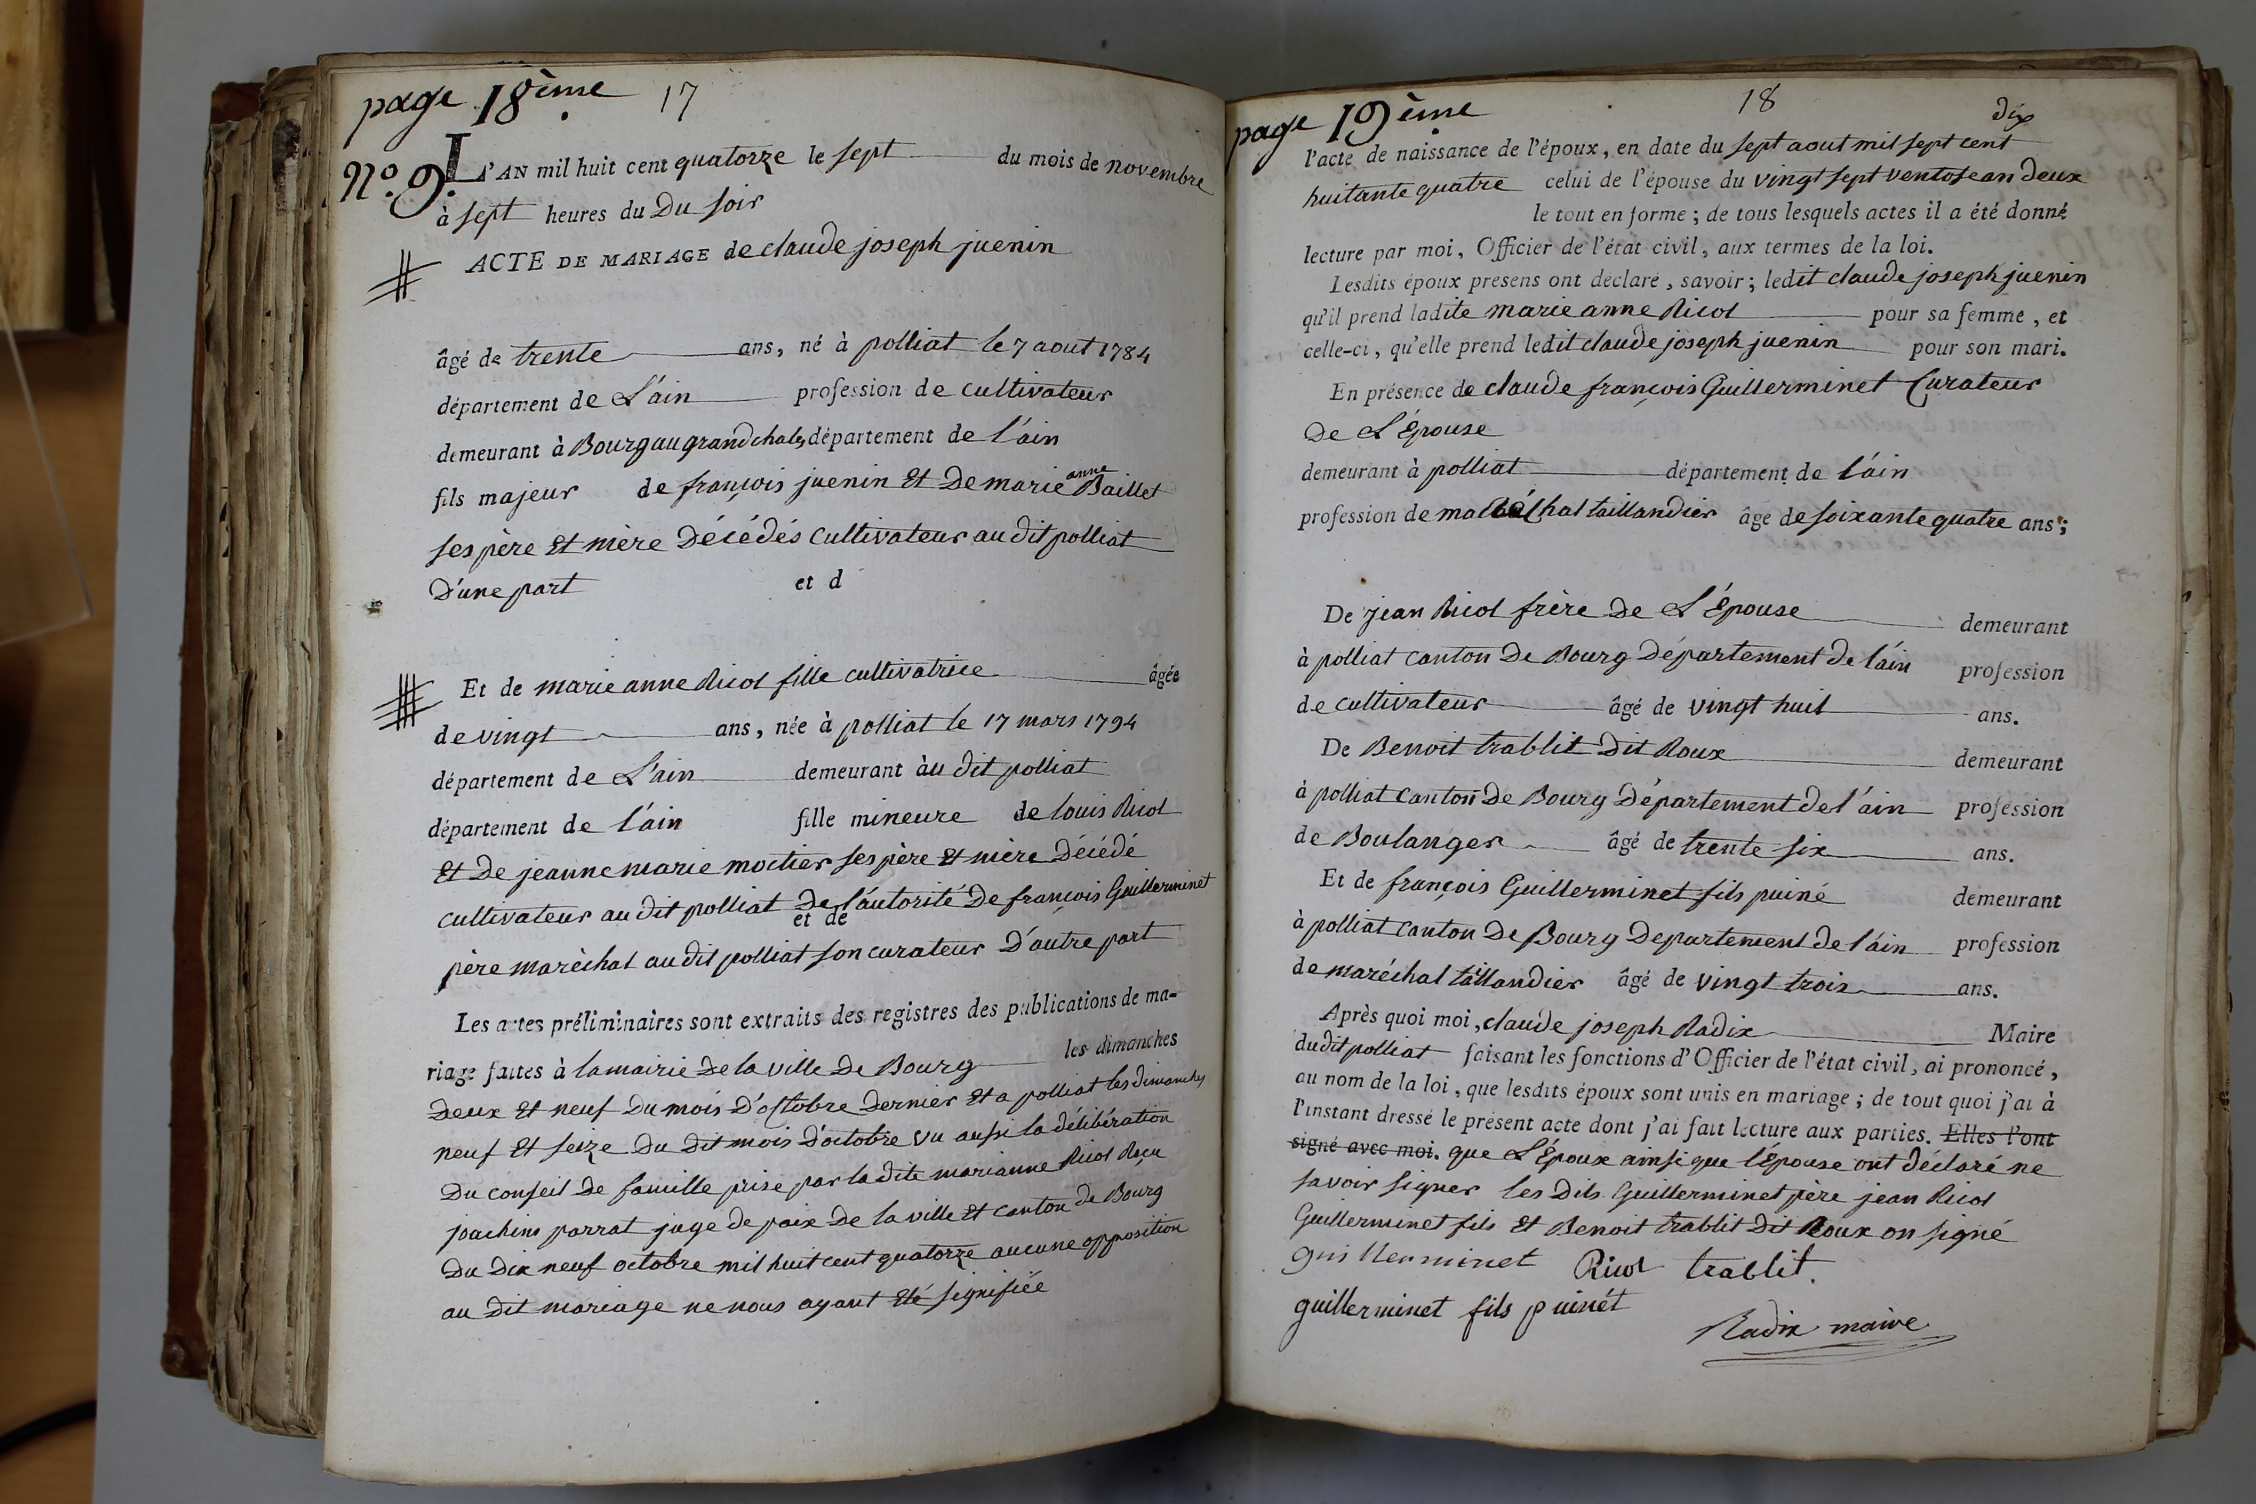 page 18ème. 17
N.o 9. L'AN mil huit cent quatorze le sept du mois de novembre
à sept heures du Du soir
ACTE DE MARIAGE de claude joseph juenin
âgé de trente ans, né à polliat le 7 aout 1784
département de L'ain profession de cultivateur
demeurant à Bourg au grand chales département de l'ain
fils majeur de françois juenin Et De marie anne Baillet
ses père Et mère Décédés cultivateur au dit polliat
D'une part et d
Et de marie anne Ricol fille cultivatrice âgée
de vingt ans, née à polliat le 17 mars 1794
département de L'ain demeurant àu dit polliat
département de l'ain fille mineure de louis Ricol
Et De jeanne marie moctier ses père Et mère Décédé
cultivateur au dit polliat De l'áutorité De françois Guillerminet
et de
père maréchal au dit polliat son curateur D'autre part
Les actes préliminaires sont extraits des registres des publications de ma-
riage faites à la mairie De la ville De Bourg les dimanches
Deux Et neuf Du mois D'octobre Dernier Et a polliat les dimanches
neuf Et seize Du Dit mois D'octobre vu aussi la délibération
Du conseil De famille prise par la dite marianne Ricol Reçu
joachim parrat juge de paix De la ville Et canton de Bourg
Du Dix neuf octobre mil huit cent quatorze aucune opposition
au Dit mariage ne nous ayant Eté signifiée
page 19ème. 18
dix
l'acte de naissance de l'époux, en date du sept aout mil sept cent
huitante quatre celui de l'épouse du vingt sept ventose an Deux
le tout en forme ; de tous lesquels actes il a été donné
lecture par moi, Officier de l'état civil, aux termes de la loi.
Lesdits époux présens ont déclaré, savoir ; ledit claude joseph juenin
qu'il prend ladite marie anne Ricol pour sa femme, et
celle-ci, qu'elle prend ledit claude joseph juenin pour son mari.
En présence de claude françois Guillerminet Curateur
De L'Épouse
demeurant à polliat département de l'áin
profession de maréchal taillandier âgé de soixante quatre ans ;
De jean Ricol frère De L'Épouse demeurant
à polliat canton De Bourg Département De l'áin profession
de cultivateur âgé de vingt huit ans.
De Benoit trablit Dit Roux demeurant
à polliat canton De Bourg Département De l'ain profession
de Boulanger âgé de trente six ans.
Et de françois Guillerminet fils puiné demeurant
à polliat canton De Bourg Departement de l'áin profession
de maréchal taillandier âgé de vingt trois ans.
Après quoi moi, claude joseph Radix Maire
dudit polliat faisant les fonctions d'Officier de l'état civil, ai prononcé,
au nom de la loi, que lesdits époux sont unis en mariage ; de tout quoi j'ai à
l'instant dressé le présent acte dont j'ai fait lecture aux parties. Elles l'ont
signé avec moi. que L'Époux ainsi que l'Épouse ont déclaré ne
savoir signer les Dits Guillerminet père jean Ricol
Guillerminet fils Et Benoit trablit Dit Roux on signé
guillerminet Ricol trablit.
guillerminet fils puinét
Radix maire